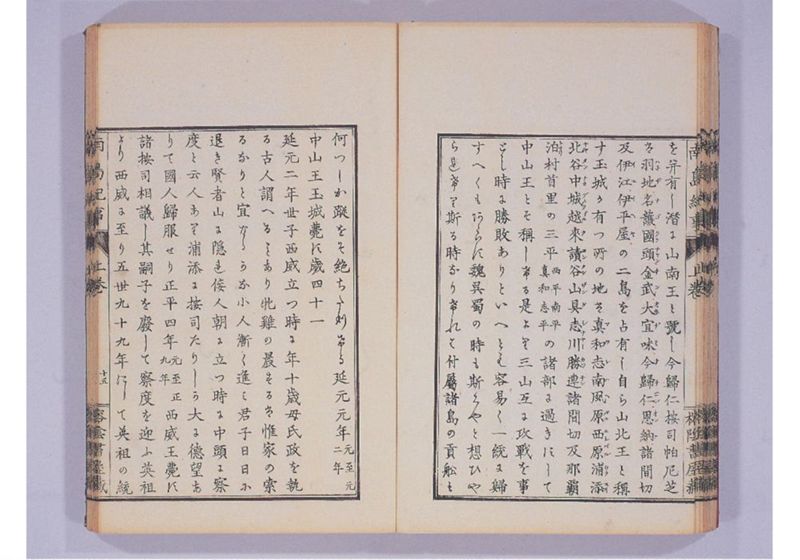 を并有し潜に山南王と號し今歸仁按司帕尼芝
る羽地名護國頭金武大宜味今歸仁恩納諸間切
及伊江伊平屋の二島を占有し自ら山北王と稱
す玉城か有つ所の地は真和志南風原西原浦添
北谷中城越來讀谷山具志川勝連諸間切及那覇
泊村首里の三平西平南平真和志平の諸部に過きにして
中山王とそ稱しける是よりそ三山互に攻戰を事
とし時に勝敗ありといへとも容易く一統に歸
すへくもあらに魏吳蜀の時も斯くやと想ひや
られける斯る時なりけれて付屬諸島の貢舩も
何つしか蹤をそ絶ちたりける延元元年元至元二年
中山王玉城薨に歳四十一
延元二年世子西威立つ時に年十歳母氏政を執
る古人謂へるとあり牝雞の晨するは惟家の索
るなりと宜なるうか小人漸く進み君子日日に
退き賢者山に隱れ佞人朝に立つ時に中頭に察
度と云人あり浦添に按司たりしう大に德望あ
りて國人歸服せり正平四年元至正九年西威王薨に
諸按司相議し其嗣子を廢して察度を迎ふ英祖
より西威に至り五世九十九年にして英祖の統
南島紀事 上巻
十五